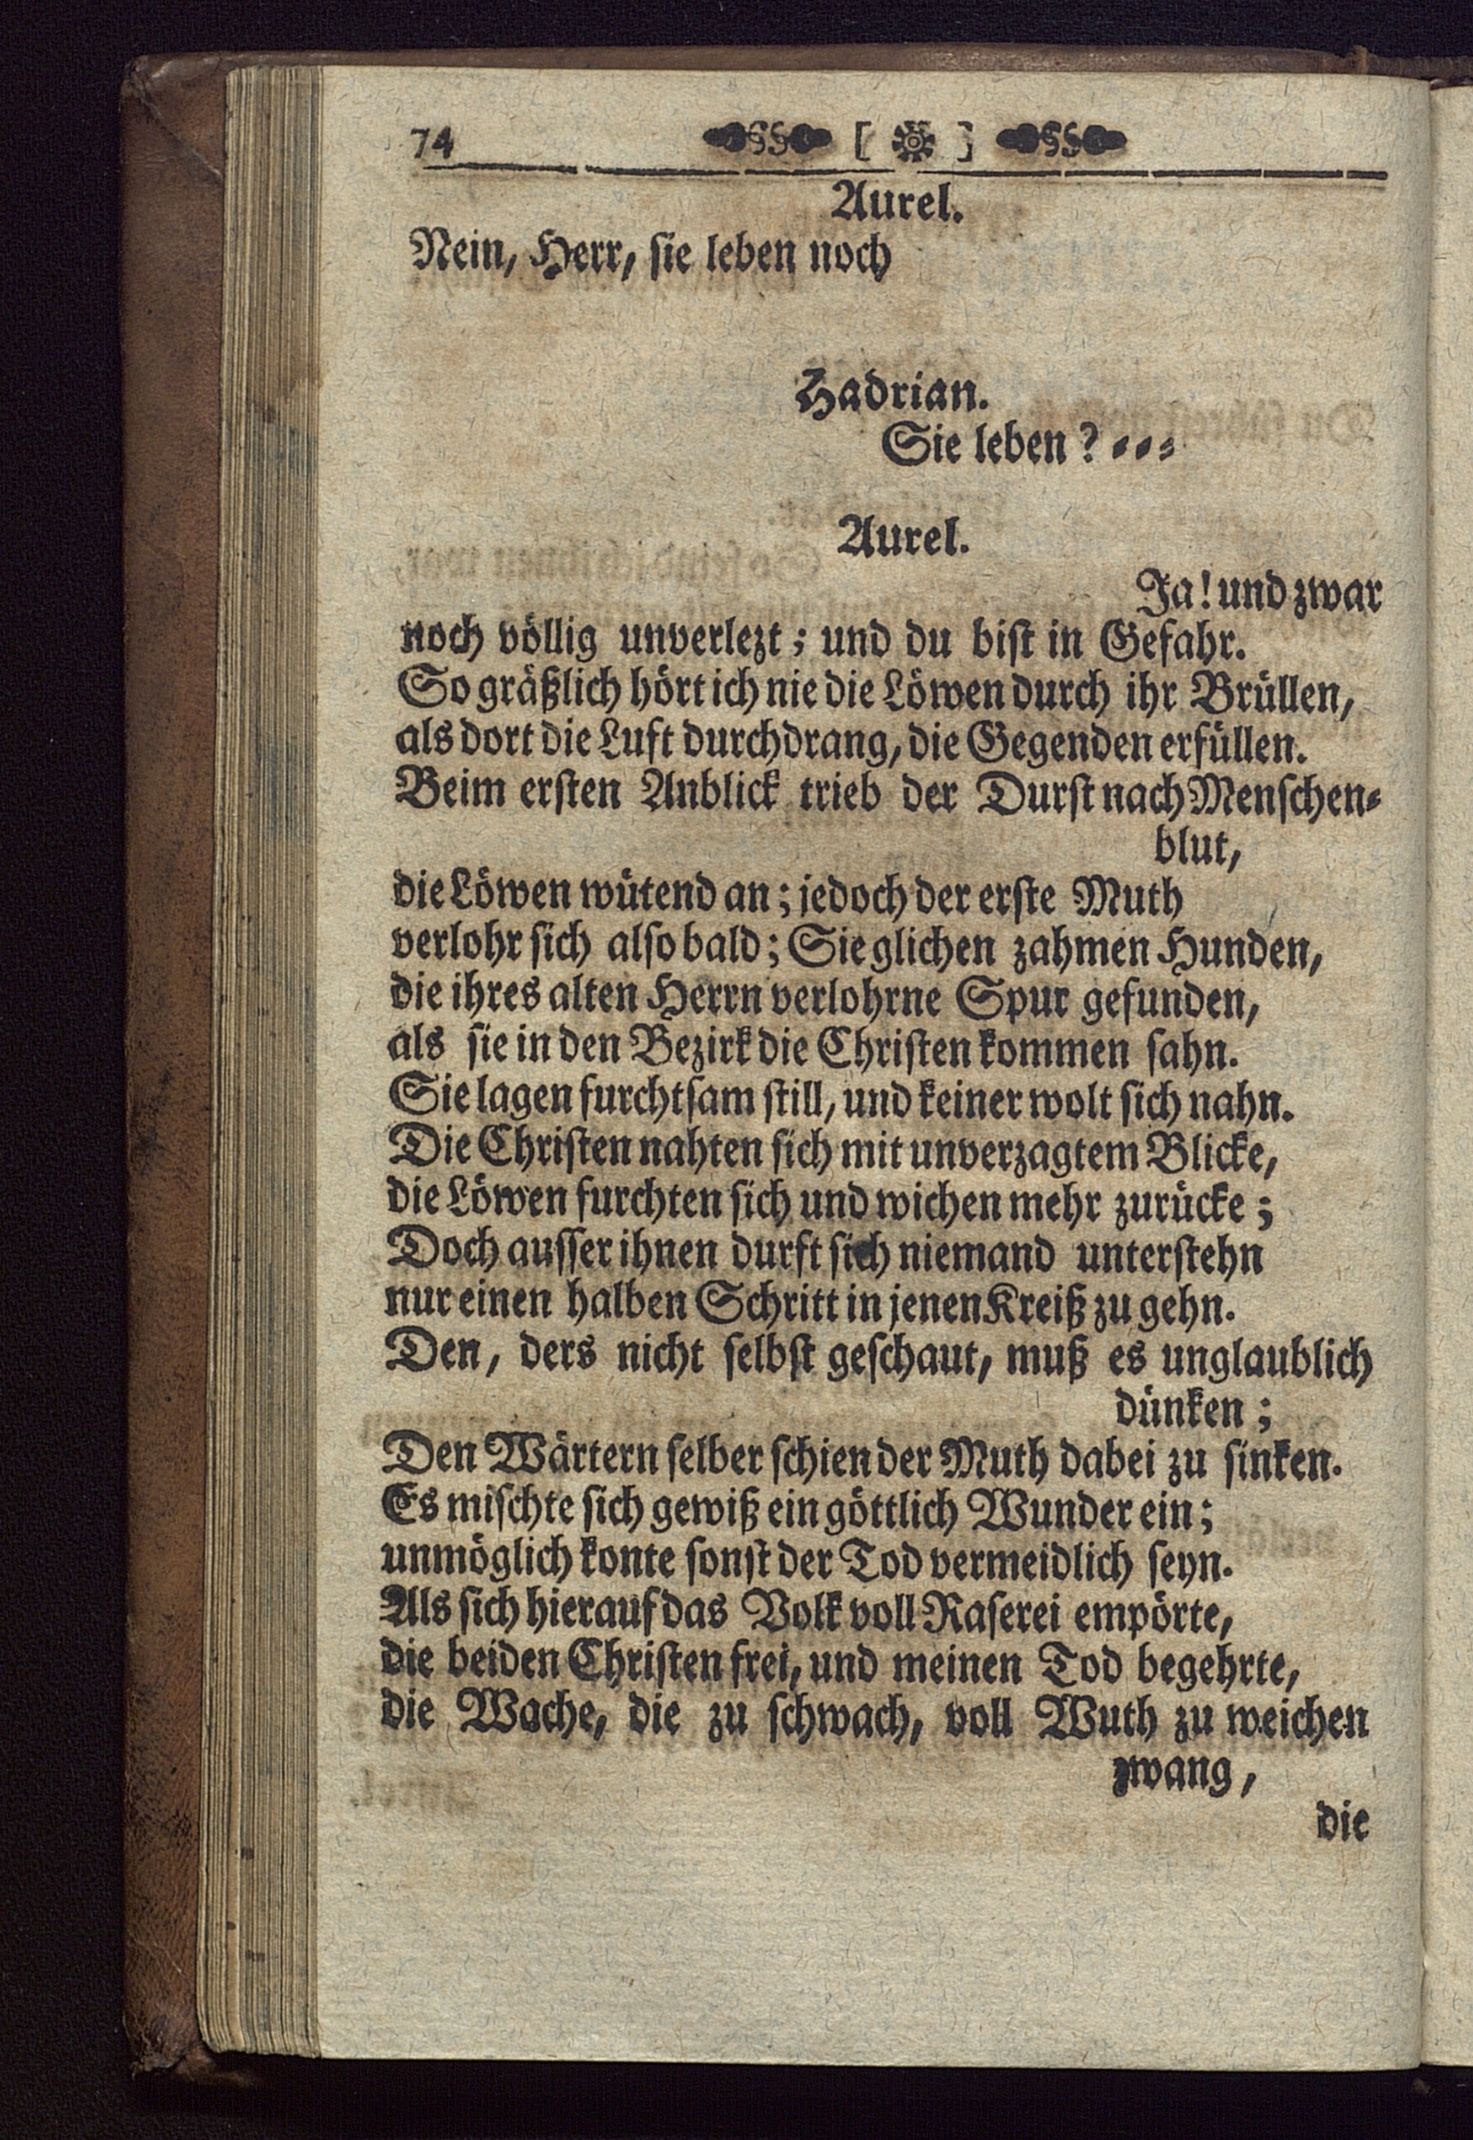 74
Aurel.
Nein, Herr, sie leben noch
Hadrian.
Sie leben? ⸗⸗⸗
Aurel.
Ja! und zwar
noch völlig unverlezt; und du bist in Gefahr.
So gräßlich hört ich nie die Löwen durch ihr Brüllen,
als dort die Luft durchdrang, die Gegenden erfüllen.
Beim ersten Anblick trieb der Durst nach Menschen⸗
blut,
die Löwen wütend an; jedoch der erste Muth
verlohr sich also bald; Sie glichen zahmen Hunden,
die ihres alten Herrn verlohrne Spur gefunden,
als sie in den Bezirk die Christen kommen sahn.
Sie lagen furchtsam still, und keiner wolt sich nahn.
Die Christen nahten sich mit unverzagtem Blicke,
die Löwen furchten sich und wichen mehr zurücke;
Doch ausser ihnen durft sich niemand unterstehn
nur einen halben Schritt in jenen Kreiß zu gehn.
Den, ders nicht selbst geschaut, muß es unglaublich
dünken;
Den Wärtern selber schien der Muth dabei zu sinken.
Es mischte sich gewiß ein göttlich Wunder ein;
unmöglich konte sonst der Tod vermeidlich seyn.
Als sich hierauf das Volk voll Raserei empörte,
die beiden Christen frei, und meinen Tod begehrte,
die Wache, die zu schwach, voll Wuth zu weichen
zwang,
die